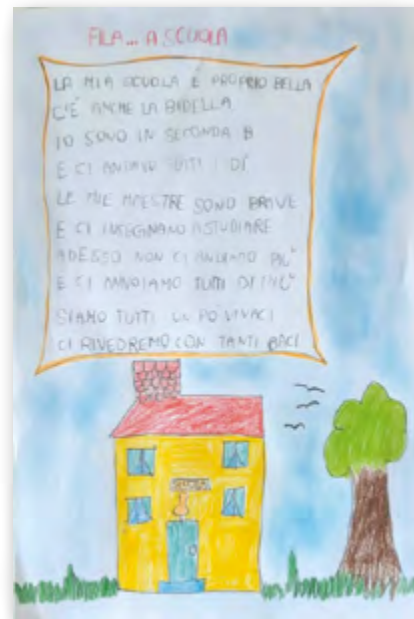 FILA... A SCUOLA
LA MIA SCUOLA È PROPRIO BELLA
C'È ANCHE LA BIDELLA
IO SONO IN SECONDA B
E CI ANDAVO TUTTI I DÌ
LE MIE MAESTRE SONO BRAVE
E CI INSEGNANO A STUDIARE
ADESSO NON CI ANDIAMO PIÙ
E CI ANNOIAMO TUTTI DI PIÙ
SIAMO TUTTI UN PO' VIVACI
CI RIVEDREMO CON TANTI BACI
SCUOLA